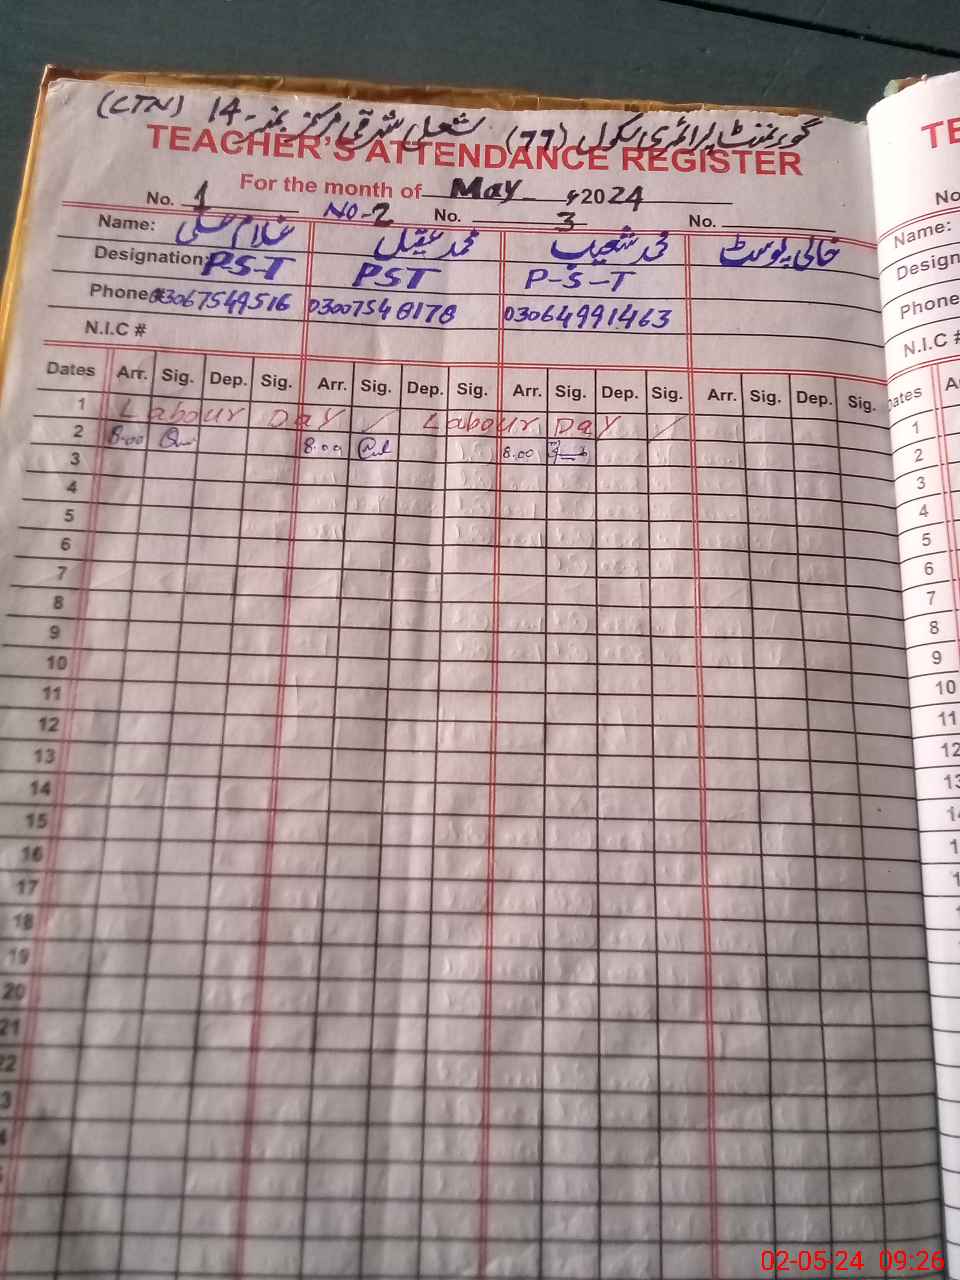 گورنمنٹ پرائمری سکول (77) شعلی شرقی مرکز نمبر-14 (LTN)
TEACHER'S ATTENDANCE REGISTER
For the month of May 2024
No. 1 NO-2 No. 3 No.
Name: غلام علی محمد عقیل محمد شعیب خالی پوسٹ
Designation: P-S-T PST P-S-T
Phone# 03067549516 03007548178 03064991463
N.I.C #
Dates Arr. Sig. Dep. Sig. Arr. Sig. Dep. Sig. Arr. Sig. Dep. Sig. Arr. Sig. Dep. Sig.
1 Labour Day ✓ Labour Day ✓
2 8.00 8.00 8.00
3
4
5
6
7
8
9
10
11
12
13
14
15
16
17
18
19
20
21
22
3
4
TE
No
Name:
Design
Phone
N.I.C #
Dates A
1
2
3
4
5
6
7
8
9
10
11
12
13
02-05-24 09:26